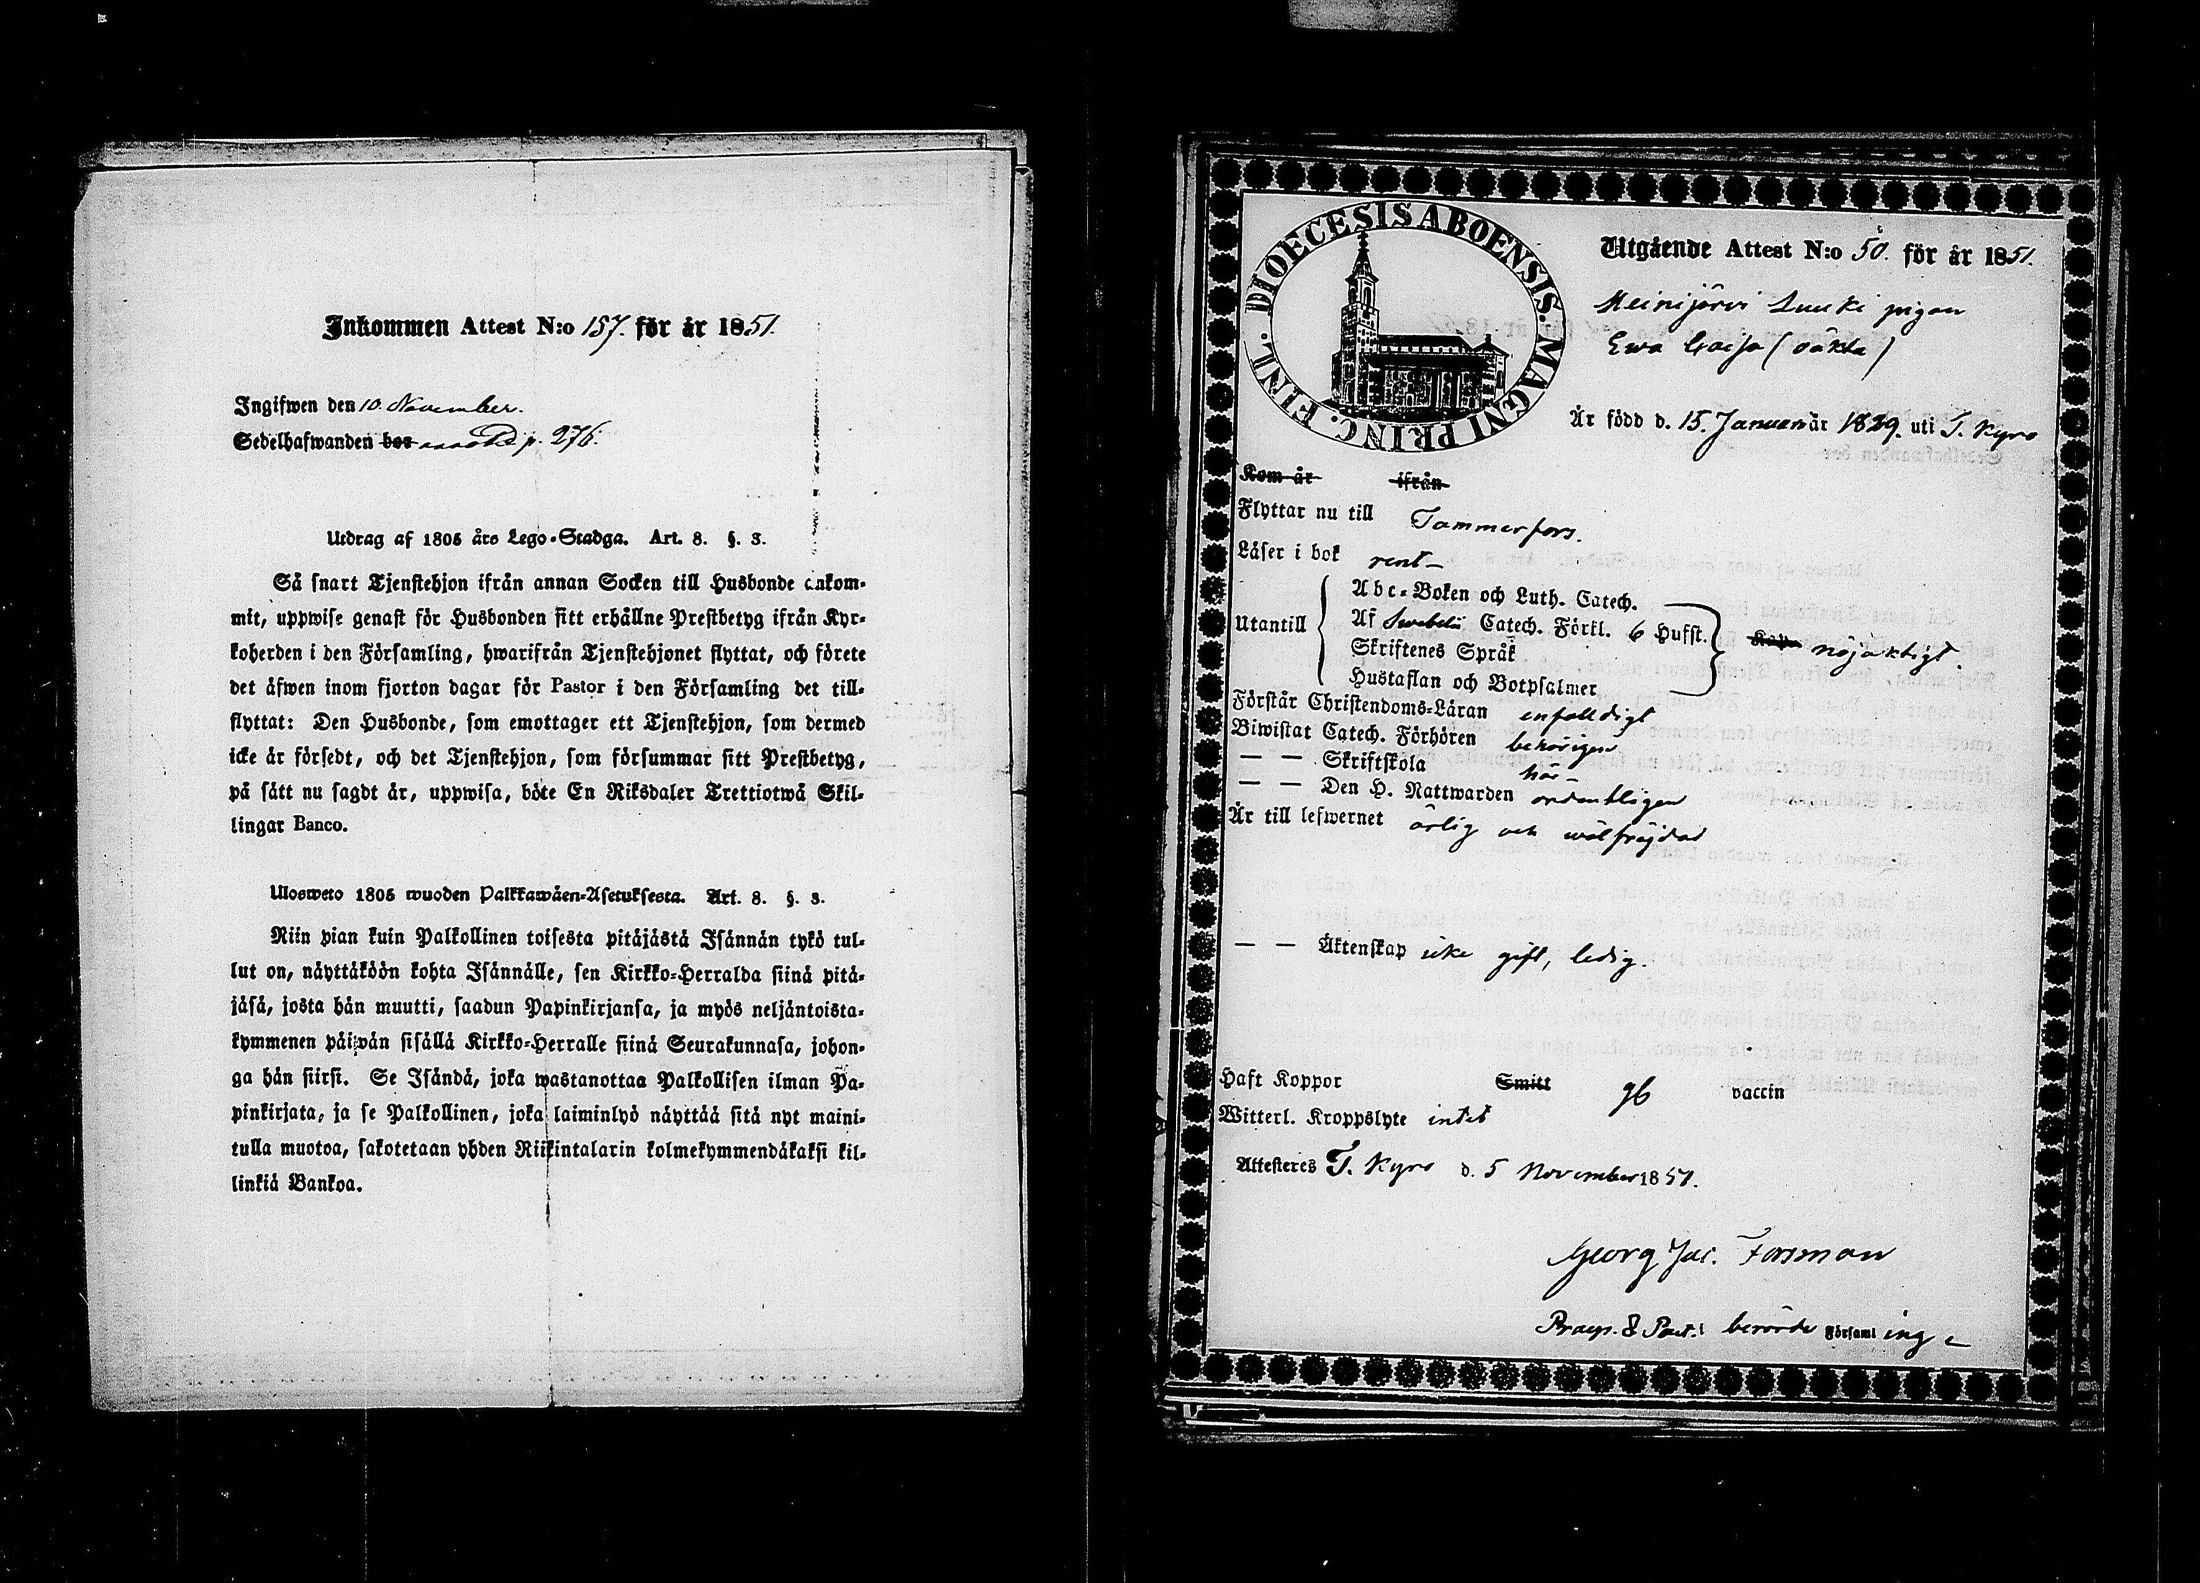 Inkommen Attest N:o 157. för år 1851.
Ingifwen den 10. November.
Sedelhafwanden bor p. 276.
Utdrag af 1805 års Lego-Stadga. Art. 8. §. 3.
Så snart Tjenstehjon ifrån annan Socken till Husbonde ankom-
mit, uppwise genast för Husbonden sitt erhållne Prestbetyg ifrån Kyr-
koherden i den Församling, hwarifrån Tjenstehjonet flyttat, och förete
det äfwen inom fjorton dagar för Pastor i den Församling det till-
flyttat: Den Husbonde, som emottager ett Tjenstehjon, som dermed
icke är försedt, och det Tjenstehjon, som försummar sitt Prestbetyg,
på sätt nu sagdt är, uppwisa, böte En Riksdaler Trettiotwå Skil-
lingar Banco.
Ulosweto 1805 wuoden Palkkawäen-Asetuksesta. Art. 8. §. 3.
Niin pian kuin Palkollinen toisesta pitäjästä Isännän tykö tul-
lut on, näyttäköön kohta Isännälle, sen Kirkko-Herralda siinä pitä-
jäsä, josta hän muutti, saadun Papinkirjansa, ja myös neljäntoista-
kymmenen päiwän sisällä Kirkko-Herralle siinä Seurakunnasa, johon-
ga hän siirsi. Se Isändä, joka wastanottaa Palkollisen ilman Pa-
pinkirjata, ja se Palkollinen, joka laiminlyö näyttää sitä nyt maini-
tulla muotoa, sakotetaan yhden Riikintalarin kolmekymmendäkaksi kil-
linkiä Bankoa.
DIOECESIS ABOENSIS. MAGNI PRINC. FINL.
Utgående Attest N:o 50. för år 1851.
Meinijärvi Luuki pigan
Ewa Caisa (oäkta)
Är född d. 15. Januari är 1829. uti T. Kyro
Kom år ifrån
Flyttar nu till Tammerfors.
Läser i bok rent
Utantill
Abc-Boken och Luth. Catech.
Af Swebelii Catech. Förkl. 6 Hufst.
Skriftenes Språk
Hustaflan och Botpsalmer
nöjaktigt.
Förstår Christendoms-Läran enfaldigt
Biwistat Catech. Förhören behörigen
— — Skriftskola här
— — Den H. Nattwarden ordentligen
Är till lefwernet ärlig och wälfrejdad
— — Äktenskap icke gift, ledig.
Haft Koppor Smitt gb vaccin
Witterl. Kroppslyte intet
Attesteres T. Kyro d. 5 November 1851.
Georg Jac. Forsman
Praep. & Past. i berörde Församlinge